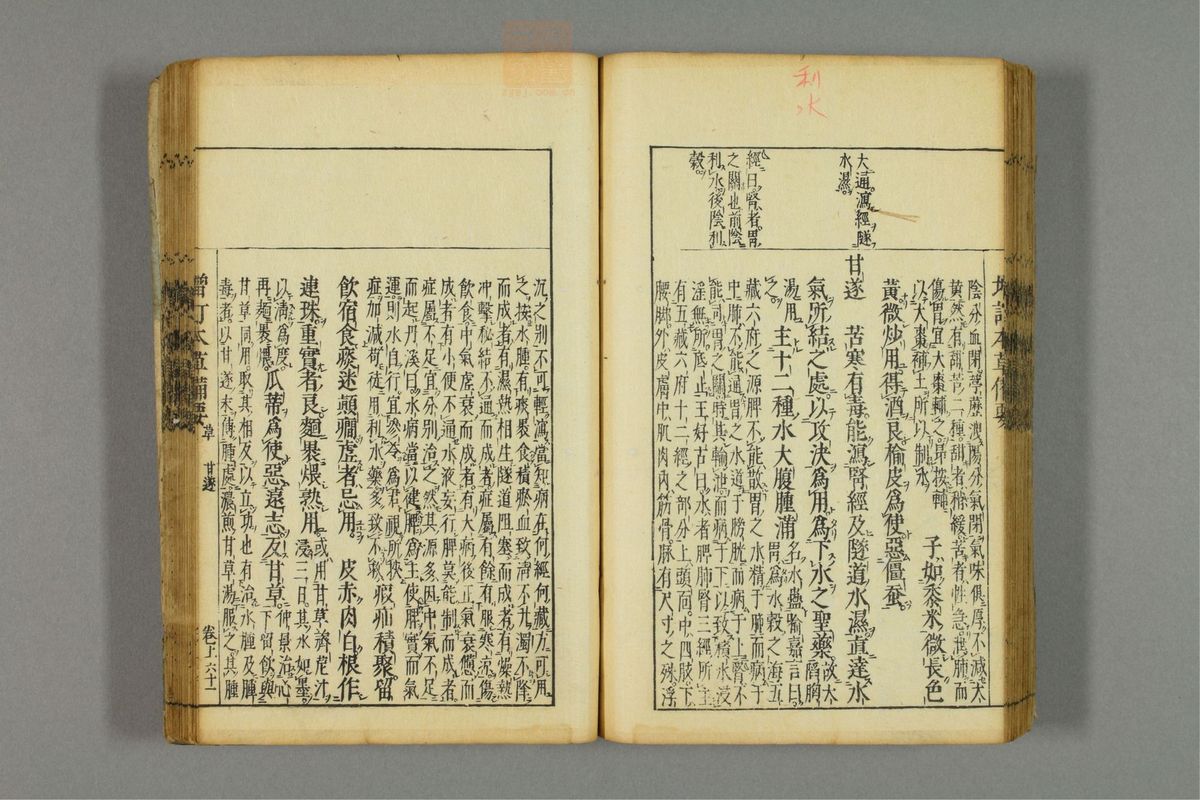 利水
大通瀉經隧
水濕。
經曰腎者胃
之關也前陰
利水後陰利
穀
陰分血閉葶藶洩陽分氣閉氣味俱厚不減大
黃然有甜苦二種甜者稍緩苦者性急洩肺而
傷胃宜大棗輔之昂按輔
以大棗補土所以制水
子如黍米微長色
黃微炒用得酒良榆皮爲使惡僵蚕
甘遂 苦寒有毒能瀉腎經及隧道水濕直達水
氣所結之處以攻決爲用爲下水之聖藥故大陷胸
湯用之。主十二種水大腹腫滿名水蠱喻嘉言曰胃爲水穀之海五
藏六府之源脾不能散胃之水精于肺而病于
中肺不能通胃之水道于膀胱而病于上腎不
能司胃之關時其輸泄而病于下以致積水浸
淫無所底止王好古曰水者脾肺腎三經所主
有五藏六府十二經之部分上頭面中四肢下
腰脚外皮膚中肌肉内筋骨脉有尺寸之殊浮
沉之別不可輕瀉當知病在何經何藏方可用
之按水腫有痰裹食積瘀血致清不升濁不降
而成者有濕熱相生隧道阻塞而成者有燥熱
冲擊秘結不通而成者症屬有餘有服寒涼傷
飲食中氣虛衰而成者有大病後正氣衰憊而
成者有小便不通水液妄行脾莫能制而成者
症屬不足宜分別治之然其源多因中氣不足
而起丹溪曰水病當以健脾爲主使脾實而氣
運則水自行宜參苓爲君視所挾
症加減苟徒用利水藥多致不救
瘕疝積聚留
飲宿食痰迷顛癎虛者忌用。 皮赤肉白根作
連珠重實者良麵裹煨熟用。或用甘草薺苨汁浸三日其水如墨
以清爲度再麵裹煨瓜蒂爲使惡遠志反甘草。仲景治心下留飲與
甘草同用取其相反以立功也有治水腫及腫
毒者以甘遂末傅腫處濃煎甘草湯服之其腫
增訂本草備要 草 甘遂 卷一上 六十一